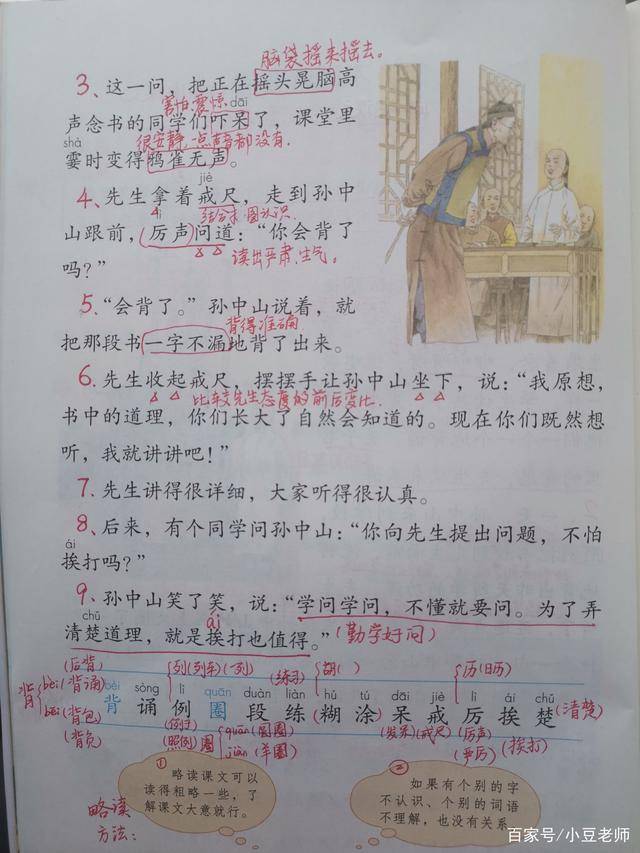 脑袋摇来摇去。
3、这一问，把正在摇头晃脑高
害怕、震惊 dāi
声念书的同学们吓呆了，课堂里
shà 很安静，一点声音都没有.
霎时变得鸦雀无声。
jiè
4、先生拿着戒尺，走到孙中
山跟前，厉声问道：“你会背了
吗？” 读出严肃、生气。
5.“会背了。”孙中山说着，就
背得准确
把那段书一字不漏地背了出来。
6.先生收起戒尺，摆摆手让孙中山坐下，说：“我原想，
比较先生态度的前后变化.
书中的道理，你们长大了自然会知道的。现在你们既然想
听，我就讲讲吧！”
7.先生讲得很详细，大家听得很认真。
8、后来，有个同学问孙中山：“你向先生提出问题，不怕
ái
挨打吗？”
9.孙中山笑了笑，说：“学问学问，不懂就要问。为了弄
chǔ ái
清楚道理，就是挨打也值得。”（勤学好问）
(后背) 列(列车)(一列) (练习) 胡( ) 历(日历)
背 bèi(背诵) bèi sòng lì quān duàn liàn hú tú dāi jiè lì ái chǔ
bēi(背包) 背 诵 例 圈 段 练 糊 涂 呆 戒 厉 挨 楚 (清楚)
(背负) (例子) (照例) 圈 quān(圆圈) juàn(羊圈) (发呆) (戒尺) (厉声) (严厉) (挨打)
略读 方法：
① 略读课文可以
读得粗略一些，了
解课文大意就行。
② 如果有个别的字
不认识、个别的词语
不理解，也没有关系
百家号/小豆老师